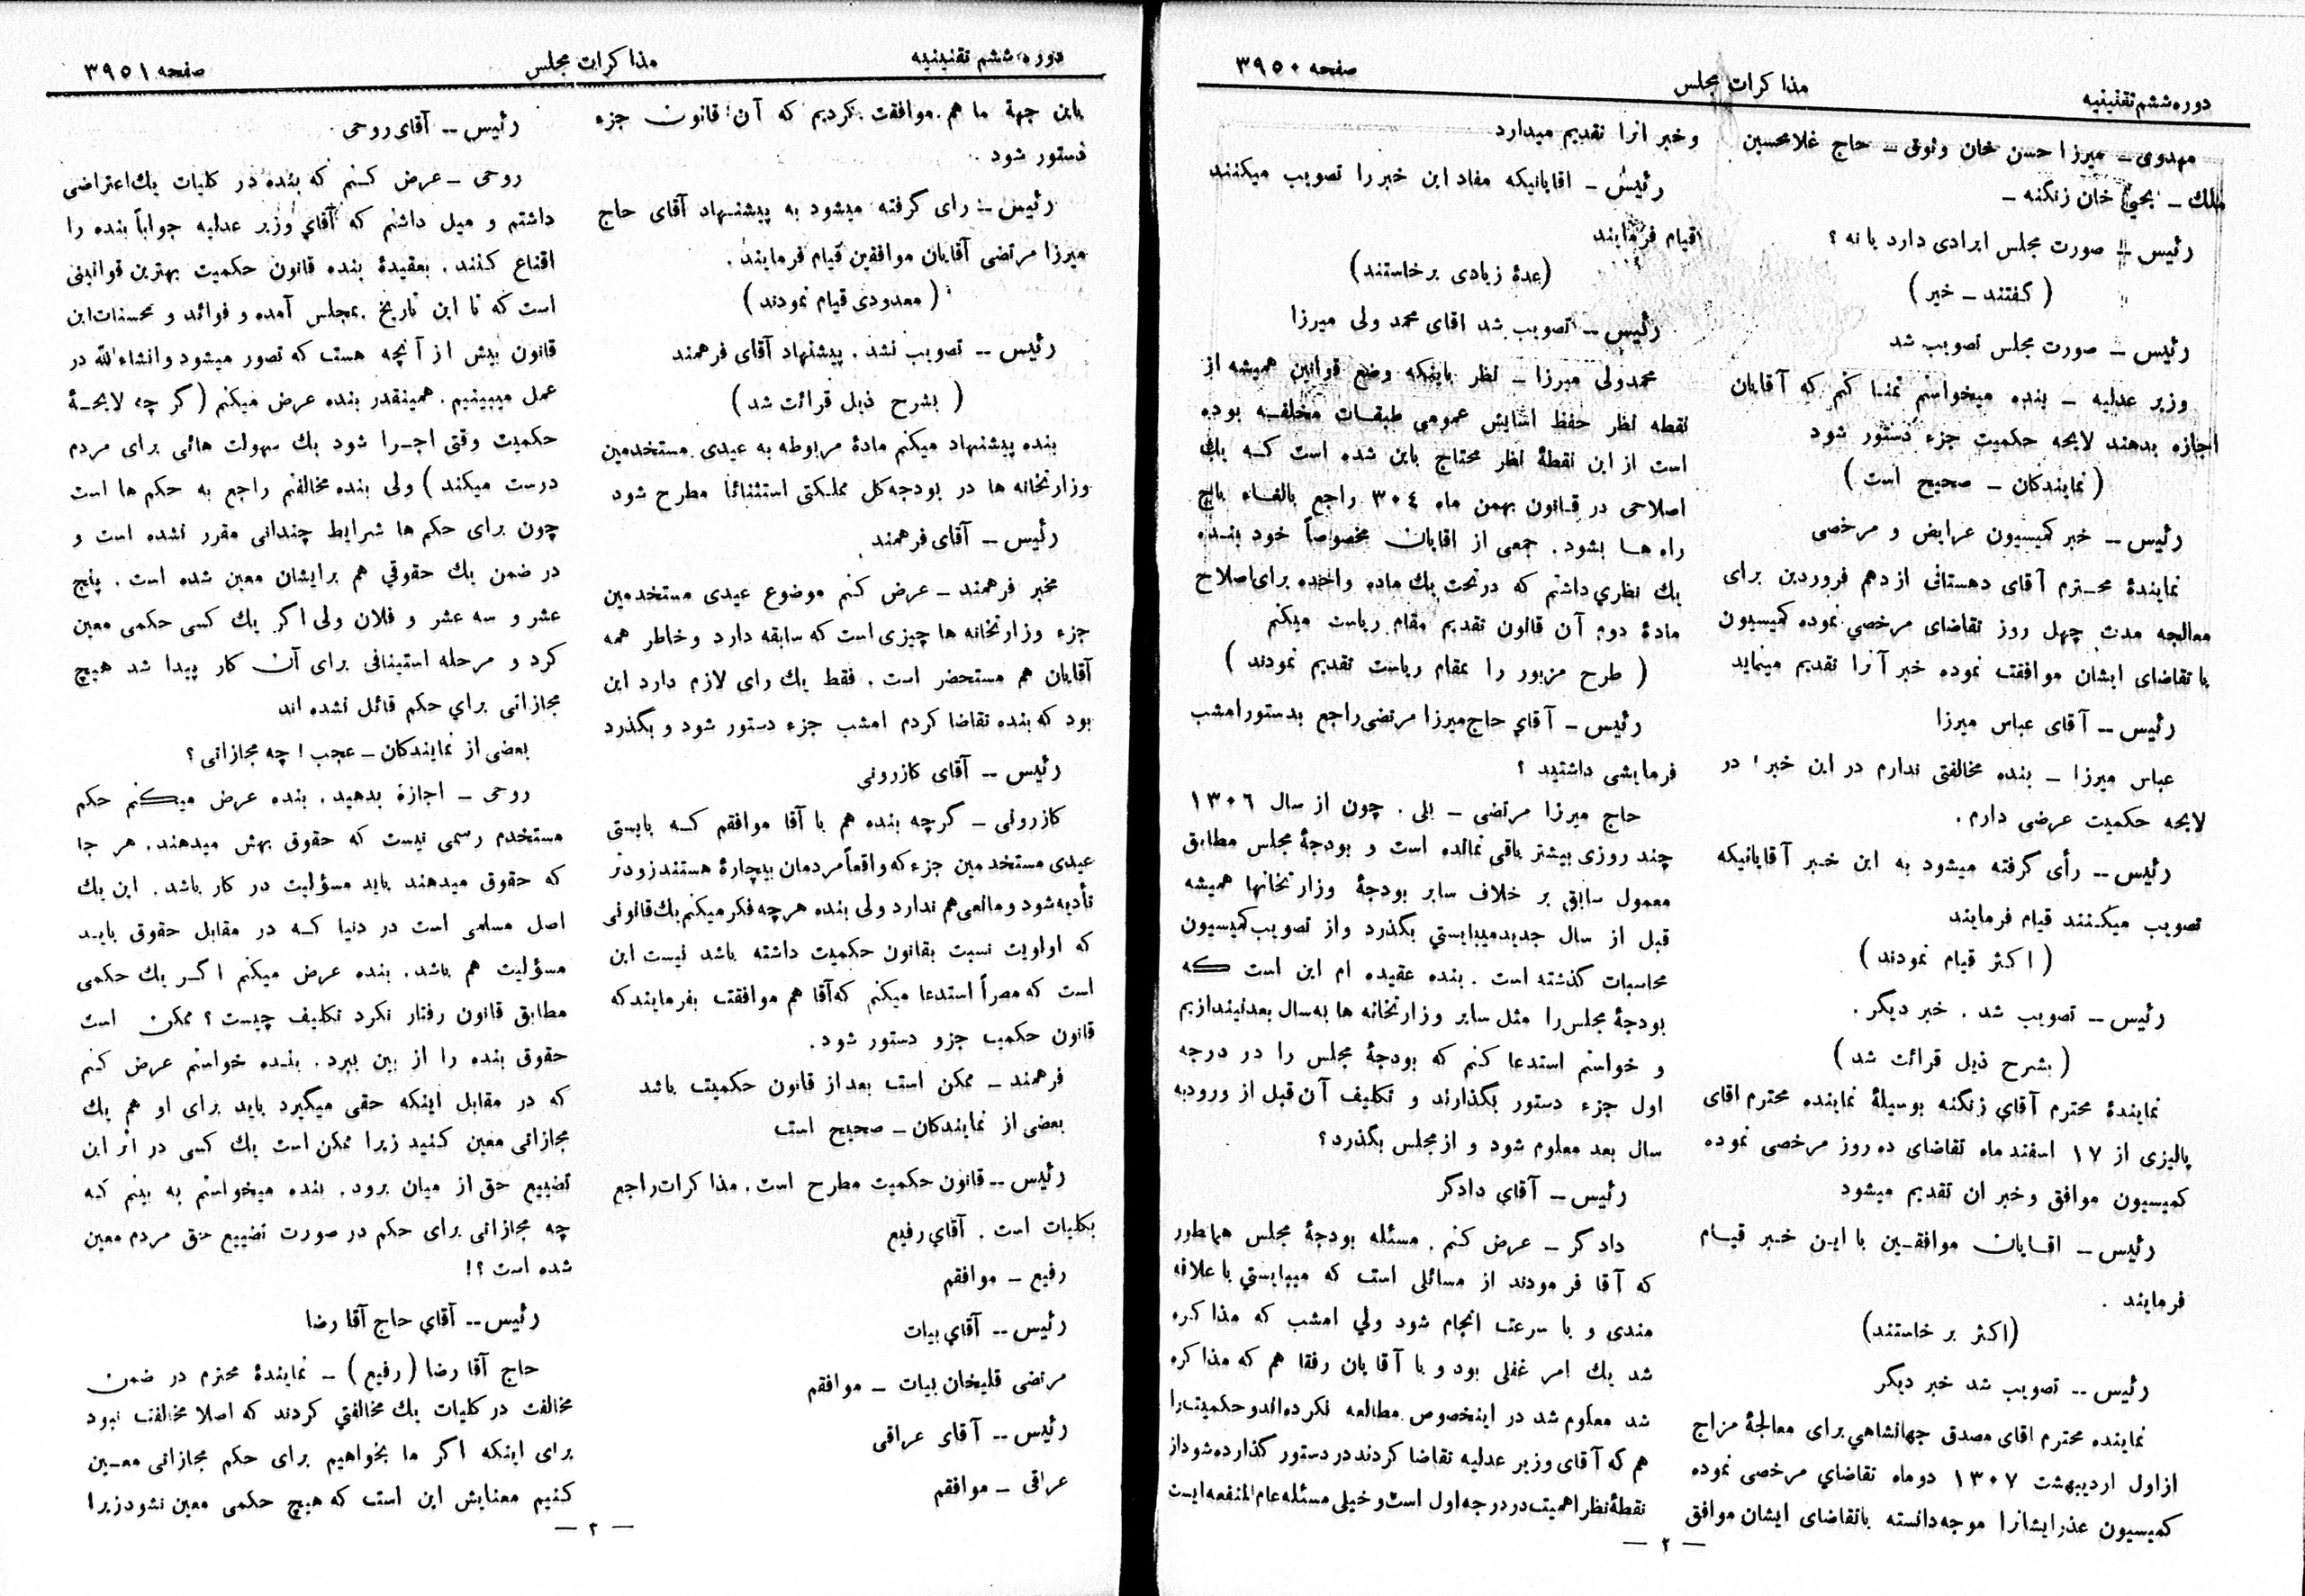 دوره ششم تقنینیه
مذاکرات مجلس
صفحه ۳۹۵۰
مهدوی ـ میرزا حسن خان وثوق ـ حاج غلامحسین
ملك ـ یحیی خان زنگنه ـ
رئیس ـ صورت مجلس ایرادی دارد یا نه ؟
( گفتند ـ خیر )
رئیس ـ صورت مجلس تصویب شد
وزیر عدلیه ـ بنده میخواستم تمنا کنم که آقایان
اجازه بدهند لایحه حکمیت جزء دستور شود
( نمایندگان ـ صحیح است )
رئیس ـ خبر کمیسیون عرایض و مرخصی
نمایندۀ محترم آقای دهستانی از دهم فروردین برای
معالجه مدت چهل روز تقاضای مرخصی نموده کمیسیون
با تقاضای ایشان موافقت نموده خبر آنرا تقدیم مینماید
رئیس ـ آقای عباس میرزا
عباس میرزا ـ بنده مخالفتی ندارم در این خبر در
لایحه حکمیت عرضی دارم .
رئیس ـ رأی گرفته میشود به این خبر آقایانیکه
تصویب میکنند قیام فرمایند
( اکثر قیام نمودند )
رئیس ـ تصویب شد . خبر دیگر .
( بشرح ذیل قرائت شد )
نمایندۀ محترم آقای زنگنه بوسیلۀ نماینده محترم اقای
پالیزی از ۱۷ اسفند ماه تقاضای ده روز مرخصی نموده
کمیسیون موافق و خبر ان تقدیم میشود
رئیس ـ اقایان موافقین با این خبر قیام
فرمایند .
(اکثر بر خاستند)
رئیس ـ تصویب شد خبر دیگر
نماینده محترم اقای مصدق جهانشاهی برای معالجۀ مزاج
از اول اردیبهشت ۱۳۰۷ دو ماه تقاضای مرخصی نموده
کمیسیون عذر ایشانرا موجه دانسته با تقاضای ایشان موافق
و خبر انرا تقدیم میدارد
رئیس ـ اقایانیکه مفاد این خبر را تصویب میکنند
قیام فرمایند
(عدۀ زیادی برخاستند)
رئیس ـ تصویب شد اقای محمد ولی میرزا
محمدولی میرزا ـ نظر باینکه وضع قوانین همیشه از
نقطه نظر حفظ اسایش عمومی طبقات مختلفه بوده
است از این نقطۀ نظر محتاج باین شده است که یك
اصلاحی در قانون بهمن ماه ۳۰٤ راجع بالغاء باج
راه ها بشود . جمعی از اقایان مخصوصاً خود بنده
یك نظری داشتم که در تحت یك ماده واحده برای اصلاح
مادۀ دوم آن قانون تقدیم مقام ریاست میکنم
( طرح مزبور را بمقام ریاست تقدیم نمودند )
رئیس ـ آقای حاج میرزا مرتضی راجع بدستور امشب
فرمایشی داشتید ؟
حاج میرزا مرتضی ـ بلی . چون از سال ۱۳۰٦
چند روزی بیشتر باقی نمانده است و بودجۀ مجلس مطابق
معمول سابق بر خلاف سایر بودجۀ وزارتخانها همیشه
قبل از سال جدید میبایستی بگذرد و از تصویب کمیسیون
محاسبات گذشته است . بنده عقیده ام این است که
بودجۀ مجلس را مثل سایر وزارتخانه ها به سال بعد نیندازیم
و خواستم استدعا کنم که بودجۀ مجلس را در درجه
اول جزء دستور بگذارند و تکلیف آن قبل از ورود به
سال بعد معلوم شود و از مجلس بگذرد ؟
رئیس ـ آقای دادگر
دادگر ـ عرض کنم . مسئله بودجۀ مجلس همانطور
که آقا فرمودند از مسائلی است که میبایستی با علاقه
مندی و با سرعت انجام شود ولی امشب که مذاکره
شد یك امر غفلی بود و با آقایان رفقا هم که مذاکره
شد معلوم شد در اینخصوص مطالعه نکرده اند و حکمیت را
هم که آقای وزیر عدلیه تقاضا کردند در دستور گذارده شود از
نقطۀ نظر اهمیت در درجه اول است و خیلی مسئله عام المنفعه ایست
ـ ۲ ـ
دوره ششم تقنینیه
مذاکرات مجلس
صفحه ۳۹۵۱
باین جهة ما هم موافقت کردیم که آن قانون جزء
دستور شود .
رئیس ـ رای گرفته میشود به پیشنهاد آقای حاج
میرزا مرتضی آقایان موافقین قیام فرمایند .
( معدودی قیام نمودند )
رئیس ـ تصویب نشد . پیشنهاد آقای فرهمند
( بشرح ذیل قرائت شد )
بنده پیشنهاد میکنم مادۀ مربوطه به عیدی مستخدمین
وزارتخانه ها در بودجه کل مملکتی استثنائاً مطرح شود
رئیس ـ آقای فرهمند
مخبر فرهمند ـ عرض کنم موضوع عیدی مستخدمین
جزء وزارتخانه ها چیزی است که سابقه دارد و خاطر همه
آقایان هم مستحضر است . فقط یك رای لازم دارد این
بود که بنده تقاضا کردم امشب جزء دستور شود و بگذرد
رئیس ـ آقای کازرونی
کازرونی ـ گرچه بنده هم با آقا موافقم که بایستی
عیدی مستخدمین جزء که واقعاً مردمان بیچارۀ هستند زودتر
تأدیه شود و مانعی هم ندارد ولی بنده هر چه فکر میکنم یك قانونی
که اولویت نسبت بقانون حکمیت داشته باشد نیست این
است که مصراً استدعا میکنم که آقا هم موافقت بفرمایند که
قانون حکمیت جزو دستور شود .
فرهمند ـ ممکن است بعد از قانون حکمیت باشد
بعضی از نمایندگان ـ صحیح است
رئیس ـ قانون حکمیت مطرح است . مذاکرات راجع
بکلیات است . آقای رفیع
رفیع ـ موافقم
رئیس ـ آقای بیات
مرتضی قلیخان بیات ـ موافقم
رئیس ـ آقای عراقی
عراقی ـ موافقم
رئیس ـ آقای روحی
روحی ـ عرض کنم که بنده در کلیات یك اعتراضی
داشتم و میل داشتم که آقای وزیر عدلیه جواباً بنده را
اقناع کنند . بعقیدۀ بنده قانون حکمیت بهترین قوانینی
است که تا این تاریخ بمجلس آمده و فوائد و محسنات این
قانون بیش از آنچه هست که تصور میشود و انشاء الله در
عمل میبینیم . همینقدر بنده عرض میکنم (گر چه لایحۀ
حکمیت وقتی اجرا شود یك سهولت هائی برای مردم
درست میکند ) ولی بنده مخالفتم راجع به حکم ها است
چون برای حکم ها شرایط چندانی مقرر نشده است و
در ضمن یك حقوقی هم برایشان معین شده است . پنج
عشر و سه عشر و فلان ولی اگر یك کسی حکمی معین
کرد و مرحله استینافی برای آن کار پیدا شد هیچ
مجازاتی برای حکم قائل نشده اند
بعضی از نمایندگان ـ عجب ! چه مجازاتی ؟
روحی ـ اجازه بدهید . بنده عرض میکنم حکم
مستخدم رسمی نیست که حقوق بهش میدهند . هر جا
که حقوق میدهند باید مسؤلیت در کار باشد . این یك
اصل مسلمی است در دنیا که در مقابل حقوق باید
مسؤلیت هم باشد . بنده عرض میکنم اگر یك حکمی
مطابق قانون رفتار نکرد تکلیف چیست ؟ ممکن است
حقوق بنده را از بین ببرد . بنده خواستم عرض کنم
که در مقابل اینکه حقی میگیرد باید برای او هم یك
مجازاتی معین کنید زیرا ممکن است یك کسی در اثر این
تضییع حق از میان برود . بنده میخواستم به بینم که
چه مجازاتی برای حکم در صورت تضییع حق مردم معین
شده است ؟!
رئیس ـ آقای حاج آقا رضا
حاج آقا رضا (رفیع) ـ نمایندۀ محترم در ضمن
مخالفت در کلیات یك مخالفتی کردند که اصلا مخالفت نبود
برای اینکه اگر ما بخواهیم برای حکم مجازاتی معین
کنیم معنایش این است که هیچ حکمی معین نشود زیرا
ـ ۲ ـ